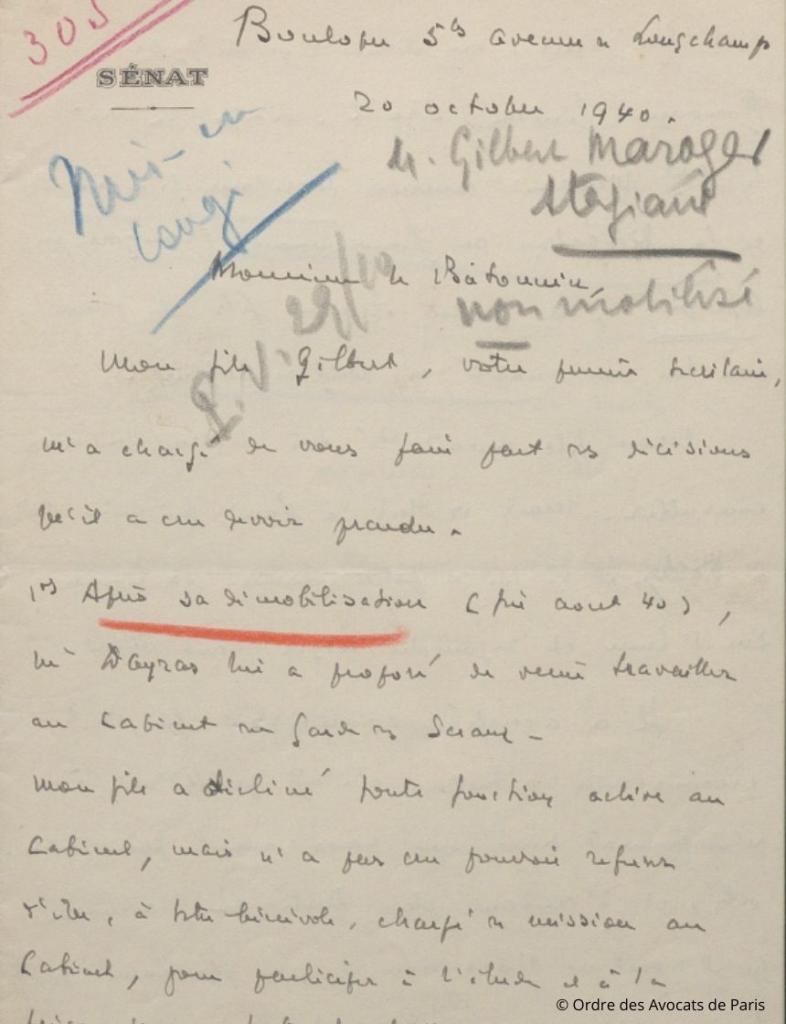 305
SÉNAT
Boulogne 5bis avenue de Longchamp
20 octobre 1940.
Mis en
congé
M. Gilbert Maroger
stagiaire
Monsieur le Bâtonnier,
non mobilisé
29/10
Mon fils Gilbert, votre premier secrétaire,
m'a chargé de vous faire part des décisions
qu'il a cru devoir prendre.
1o) Après sa démobilisation (fin aout 40),
Mr Dayras lui a proposé de venir travailler
au Cabinet du Garde des Sceaux -
Mon fils a décliné toute fonction active au
Cabinet, mais n'a pas cru pouvoir refuser
d'être, à titre bénévole, chargé de mission au
Cabinet, pour participer à l'étude et à la
© Ordre des Avocats de Paris